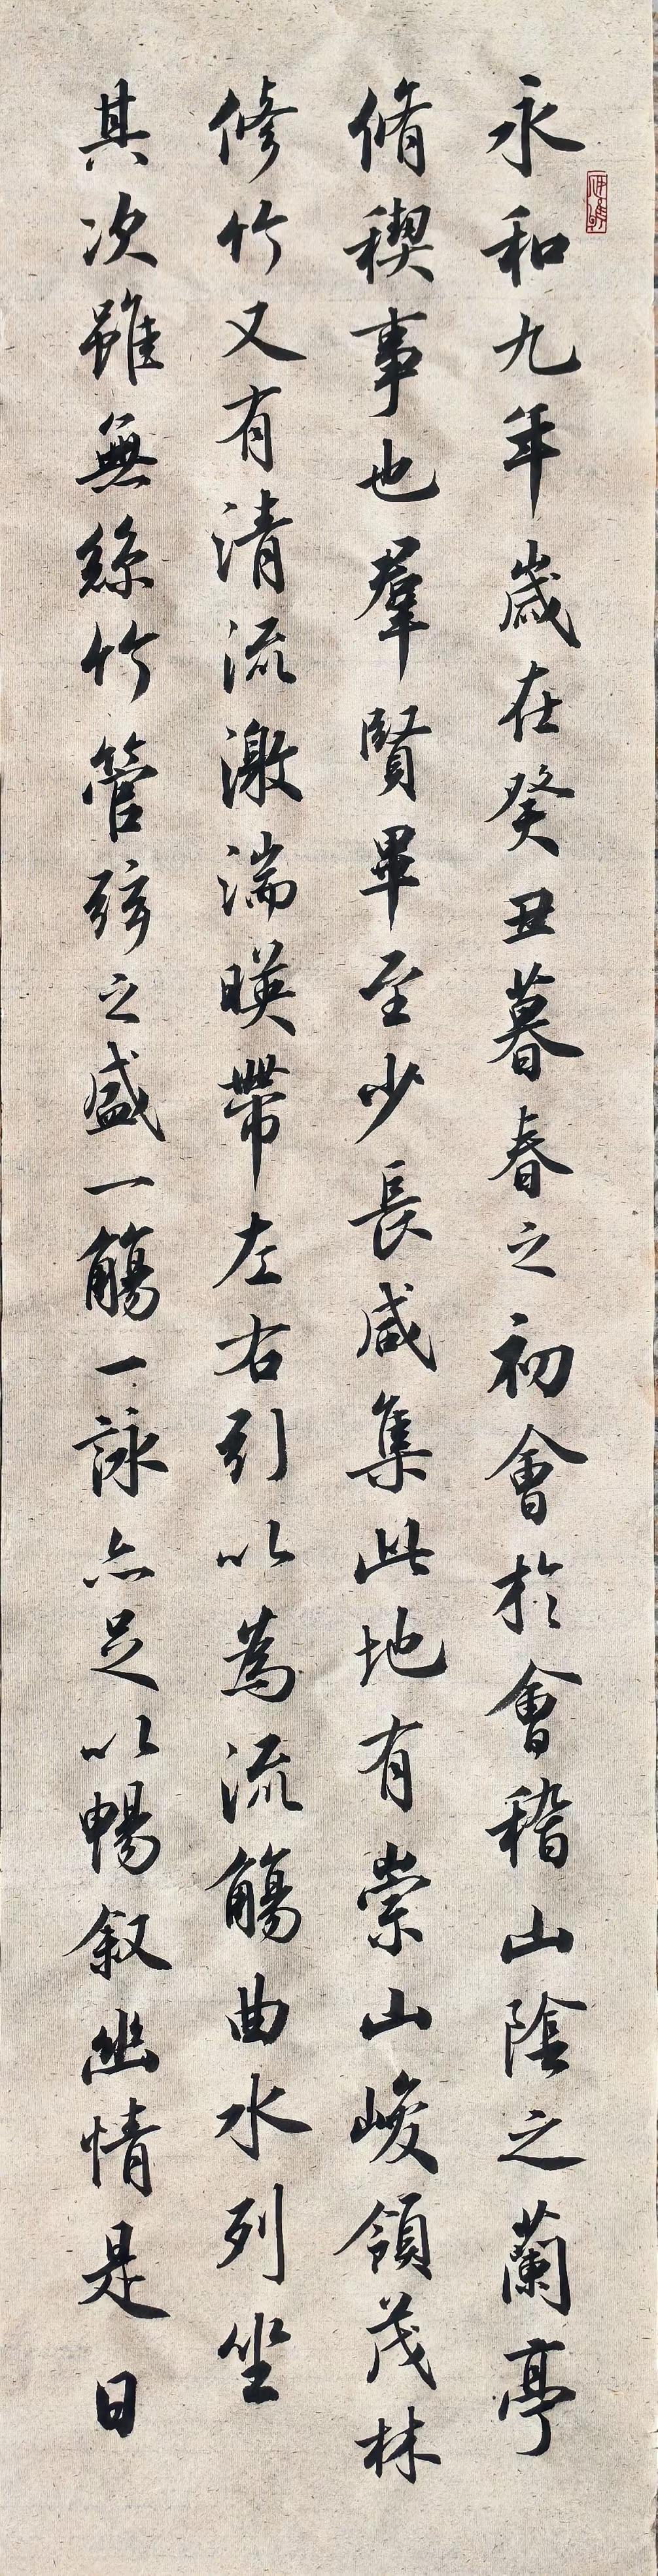 永和九年歲在癸丑暮春之初會於會稽山陰之蘭亭
脩稧事也羣賢畢至少長咸集此地有崇山峻領茂林
修竹又有清流激湍暎帶左右引以為流觴曲水列坐
其次雖無絲竹管弦之盛一觴一詠亦足以暢叙幽情是日